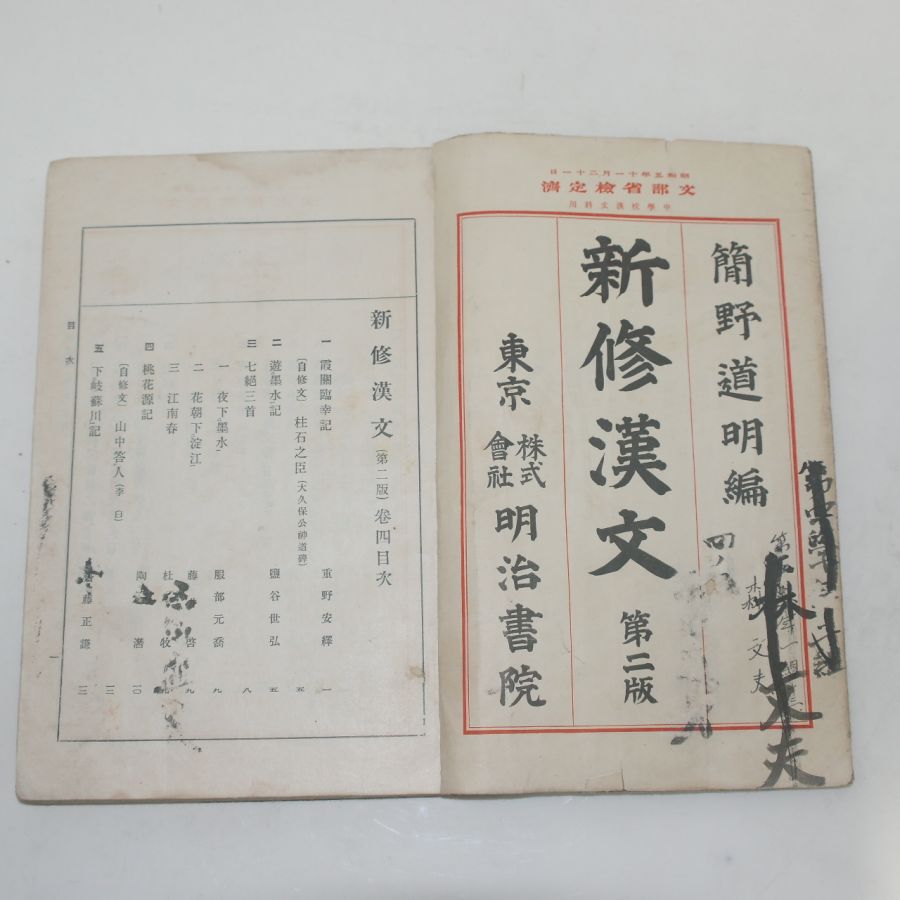 昭和五年十一月二十一日
文部省檢定濟
中學校漢文科用
簡野道明編
新修漢文 第二版
東京 株式會社 明治書院
林文夫
新修漢文（第二版）卷四目次
一 霞關臨幸記 重野安繹 一
〔自修文〕 柱石之臣（大久保公神道碑） 五
二 遊墨水記 鹽谷世弘 五
三 七絕三首 八
一 夜下墨水 服部元喬 九
二 花朝下淀江 藤 啓 九
三 江南春 杜 牧
四 桃花源記 陶 潛 一〇
〔自修文〕 山中答人（李白） 一三
五 下岐蘇川記 藤正謙 一三
目次
一